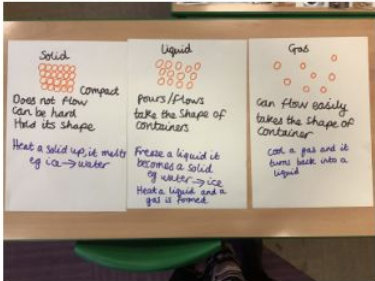 Solid
compact
Does not flow
can be hard
Hold its shape
Heat a solid up, it melts
eg ice → water
Liquid
pours/flows
take the shape of
containers
Freeze a liquid it
becomes a solid
eg water → ice
Heat a liquid and a
gas is formed
Gas
can flow easily
takes the shape of
container
Cool a gas and it
turns back into a
liquid